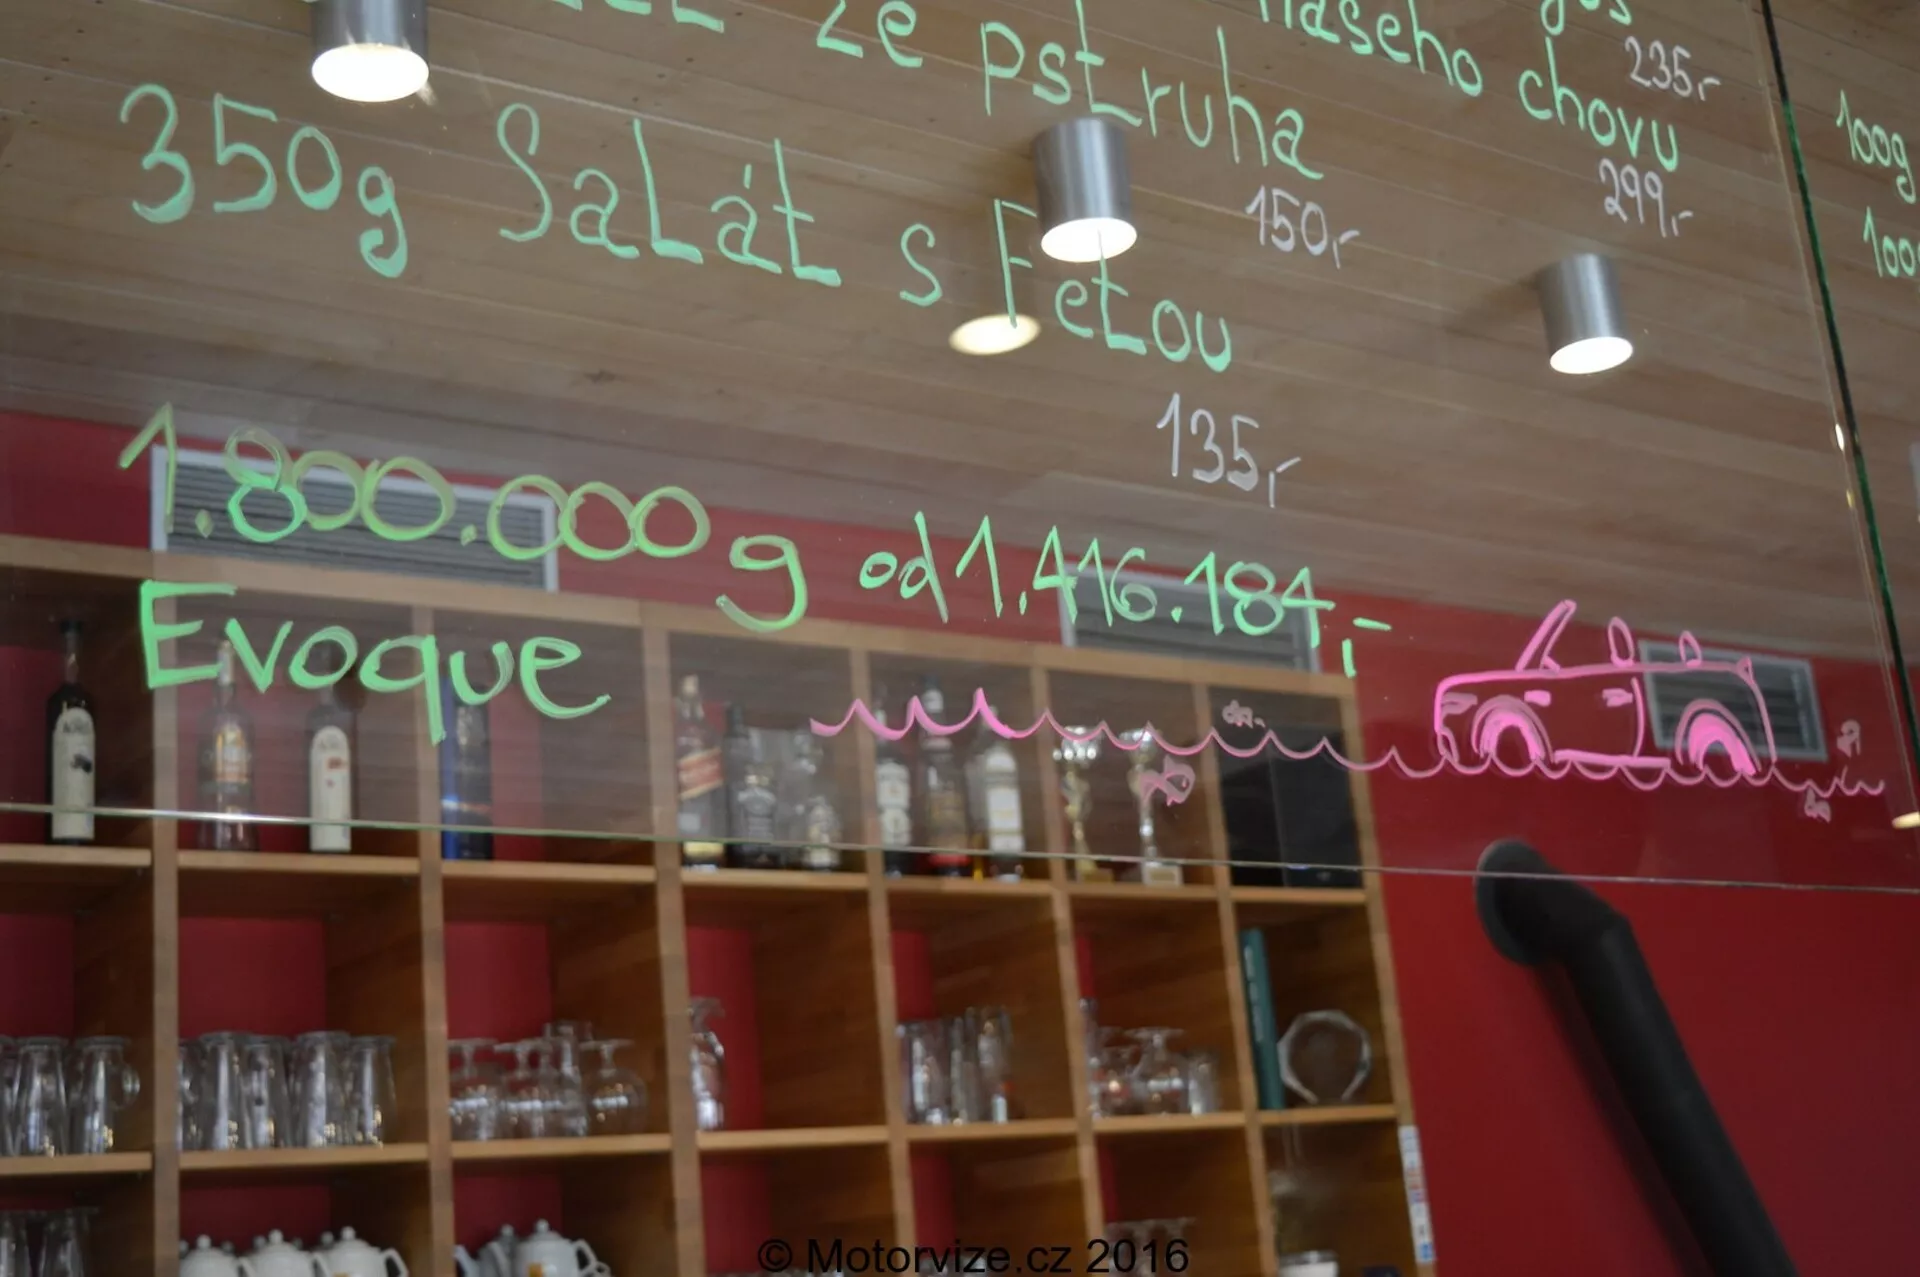 ze pstruha
150,-
našeho chovu
299,-
235,-
350g Salát s Fetou
135,-
100g
1.800.000g od 1.416.184,-
Evoque
© Motorvize.cz 2016